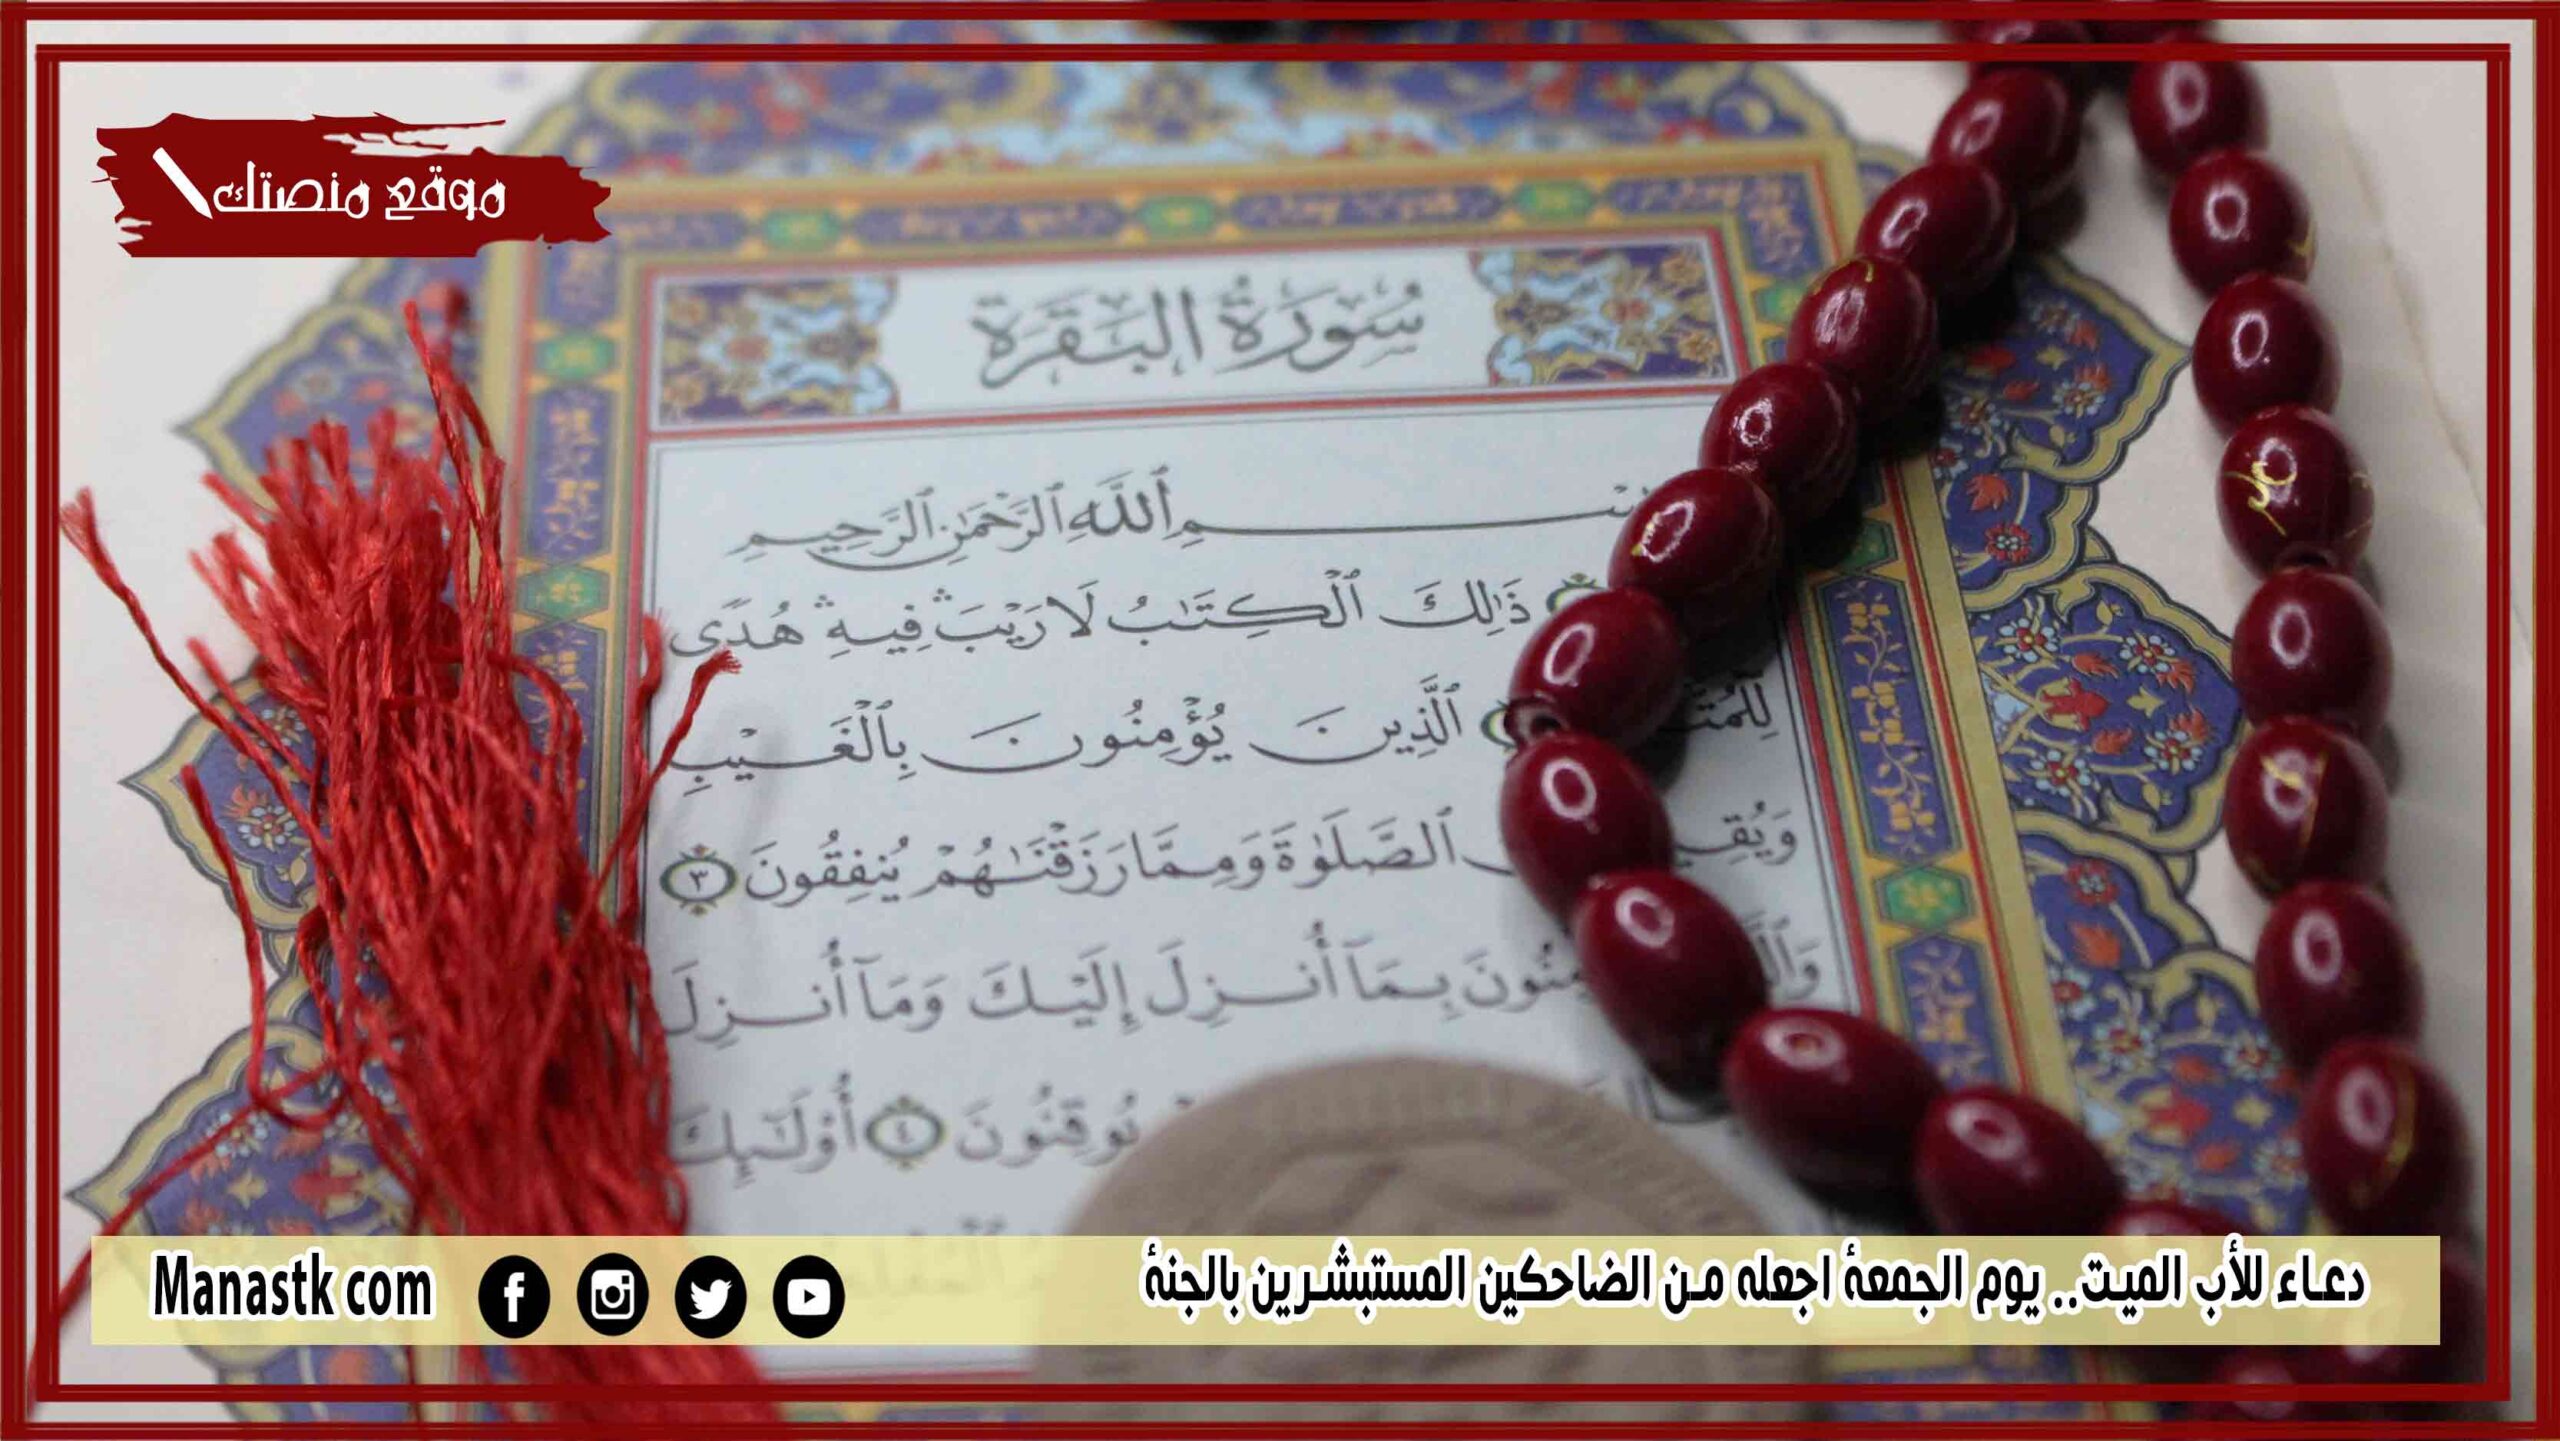 موقع منصتك
سُورَةُ البَقَرَةِ
ٱللَّهِ ٱلرَّحْمَٰنِ ٱلرَّحِيمِ
ذَٰلِكَ ٱلْكِتَٰبُ لَا رَيْبَ ۛ فِيهِ ۛ هُدًى
ٱلَّذِينَ يُؤْمِنُونَ بِٱلْغَيْبِ
ٱلصَّلَوٰةَ وَمِمَّا رَزَقْنَٰهُمْ يُنفِقُونَ ٣
بِمَآ أُنزِلَ إِلَيْكَ وَمَآ أُنزِلَ
يُوقِنُونَ ٤ أُوْلَٰٓئِكَ
دعاء للأب الميت.. يوم الجمعة اجعله من الضاحكين المستبشرين بالجنة
Manastk com